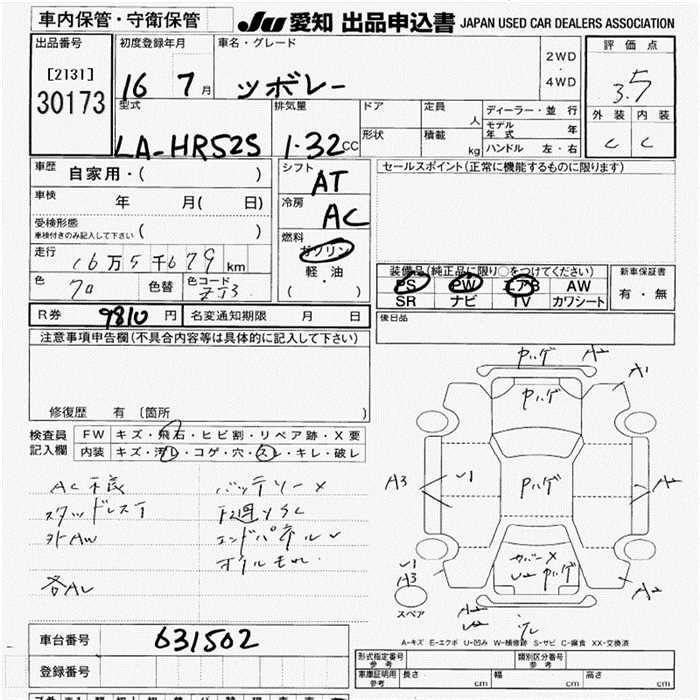 車内保管・守衛保管
JU 愛知 出品申込書 JAPAN USED CAR DEALERS ASSOCIATION
出品番号 [2131] 30173
初度登録年月 16 7月
車名・グレード ツボレー
2WD・4WD
評価点 3.5
外装 C 内装 C
型式 LA-HR52S
排気量 1.32CC
ドア 定員 人
形状 積載 kg
ディーラー・並行
モデル年式 年
ハンドル 左・右
車歴 自家用・( )
シフト AT
セールスポイント(正常に機能するものに限ります)
車検 年 月( 日)
冷房 AC
受検形態 車検付きのみ記入して下さい ( )
燃料 ガソリン 軽・油 ( ・ )
走行 16万5千679km
色 色替 色コード ZJ3
装備品(純正品に限り○をつけてください)
PS PW エアB AW
SR ナビ TV カワシート
新車保証書 有・無
R券 9810円 名変通知期限 月 日
後日品
注意事項申告欄(不具合内容等は具体的に記入して下さい)
修復歴 有 〔箇所 〕
検査員記入欄
FW キズ・飛石・ヒビ割・リペア跡・X要
内装 キズ・汚レ・コゲ・穴・スレ・キレ・破レ
AC不良 バッテリー×
スタッドレスT 下廻りSC
外AW エンドパネルU
オイルモレ
各AU
ハゲ A2
ハゲ A1
A3 U1 ハゲ A2
カバー×
U2 ハゲ
U1
A3
A2
スペア
A2
U2
A-キズ E-エクボ U-凹み W-補修跡 S-サビ C-腐食 XX-交換済
車台番号 631502
登録番号
形式指定番号 参考 類別区分番号 参考
車庫証明用 参考 長さ cm 幅 cm 高さ cm